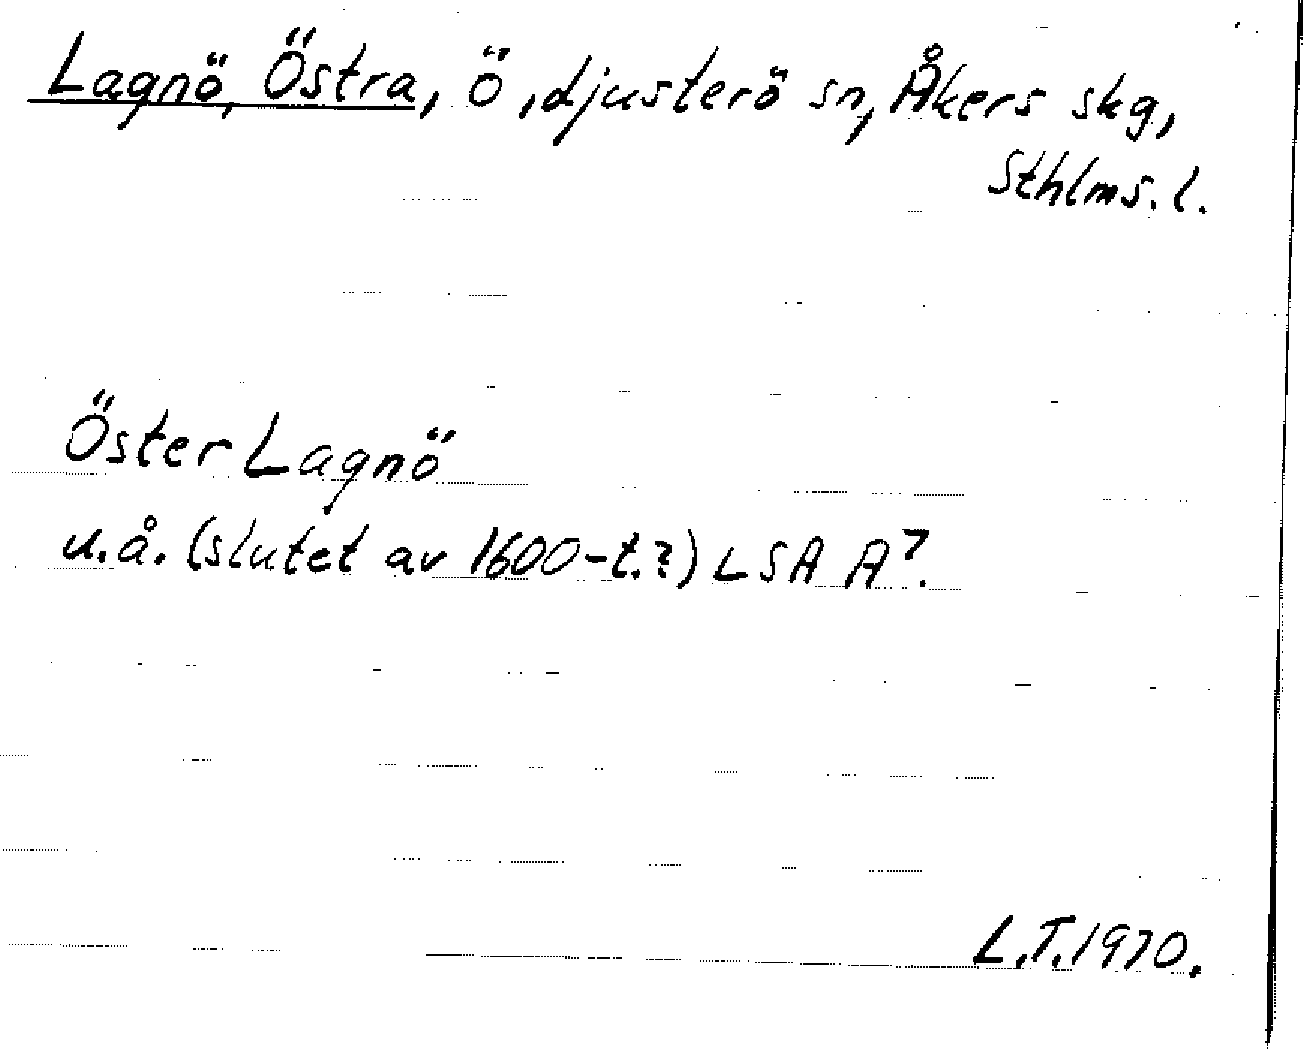 Lagnö, Östra, Ö, djusterö sn, Åkers skg,
Sthlms. l.
Öster Lagnö
u.å. (slutet av 1600-t.?) LSA A7.
L.T. 1970.